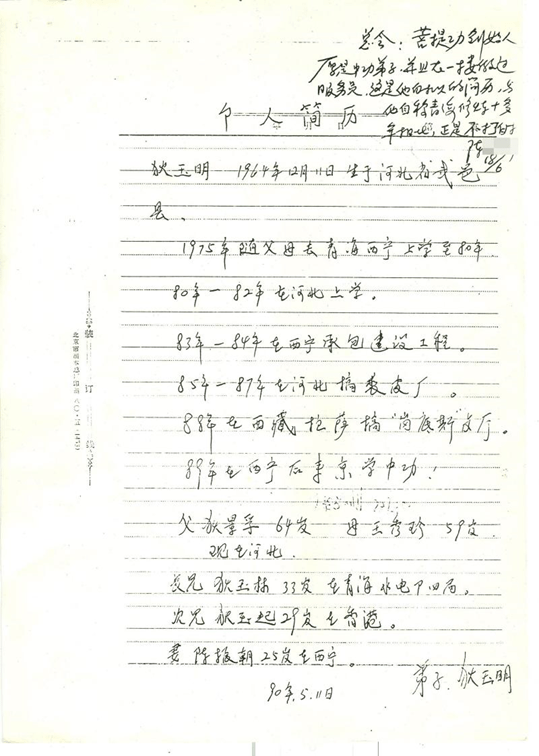 总会：菩提功创始人
原是中功弟子，并且在一接做过
服务员，这是他自扒的简历，与
他自称青海修炼十多
年
个人简历
狄玉明 1964年12月11日生于河北省武邑
县。
1975年随父母去青海西宁上学至80年
80年－82年在河北上学。
83年－84年在西宁承包建设工程。
85年－87年在河北搞裘皮厂。
88年在西藏拉萨搞"岗底斯"文厅。
89年在西宁后来京学中功！
父 狄 64岁 母 王秀珍 59岁
现在河北。
长兄 狄玉林 33岁 在青海水电四局。
次兄 狄玉起 29岁 在香港。
妻 陈振朝 25岁在西宁。
弟子．狄玉明
90年．5．11日